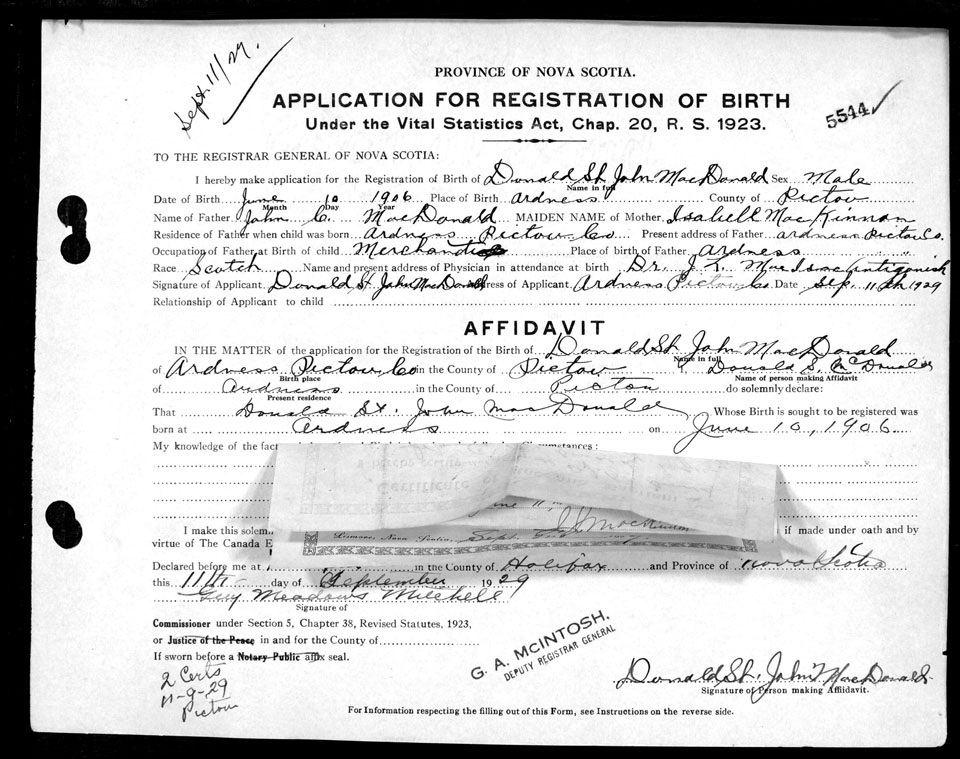 Sept. 11/29.
PROVINCE OF NOVA SCOTIA.
APPLICATION FOR REGISTRATION OF BIRTH
5544
Under the Vital Statistics Act, Chap. 20, R. S. 1923.
TO THE REGISTRAR GENERAL OF NOVA SCOTIA:
I hereby make application for the Registration of Birth of Donald St. John MacDonald Sex Male
Name in full
Date of Birth June 10 1906 Place of Birth Ardness County of Pictou
Month Day Year
Name of Father John C. MacDonald MAIDEN NAME of Mother Isabell MacKinnon
Residence of Father when child was born Ardness Pictou Co Present address of Father Ardness Pictou Co.
Occupation of Father at Birth of child Merchant Place of birth of Father Ardness
Race Scotch Name and present address of Physician in attendance at birth Dr. J. MacIsaac Antigonish
Signature of Applicant Donald St John MacDonald Address of Applicant Ardness Pictou Co Date Sep. 11th 1929
Relationship of Applicant to child
AFFIDAVIT
IN THE MATTER of the application for the Registration of the Birth of Donald St. John MacDonald
Name in full
of Ardness Pictou Co in the County of Pictou I, Donald S. McDonald
Birth place Name of person making Affidavit
of Ardness in the County of Pictou do solemnly declare:
Present residence
That Donald St. John MacDonald Whose Birth is sought to be registered was
born at Ardness on June 10, 1906
My knowledge of the Circumstances:
Certificate
June 11
I make this if made under oath and by
Lismore, Nova Scotia, Sept.
virtue of The Canada
Declared before me at in the County of Halifax and Province of Nova Scotia
this 11th day of September 1929
Guy Meadows Mitchell
Signature of
Commissioner under Section 5, Chapter 38, Revised Statutes, 1923,
or Justice of the Peace in and for the County of
If sworn before a Notary Public affix seal.
G. A. McINTOSH,
DEPUTY REGISTRAR GENERAL
2 Certs
11-9-29
Pictou
Donald St. John MacDonald
Signature of Person making Affidavit.
For Information respecting the filling out of this Form, see Instructions on the reverse side.